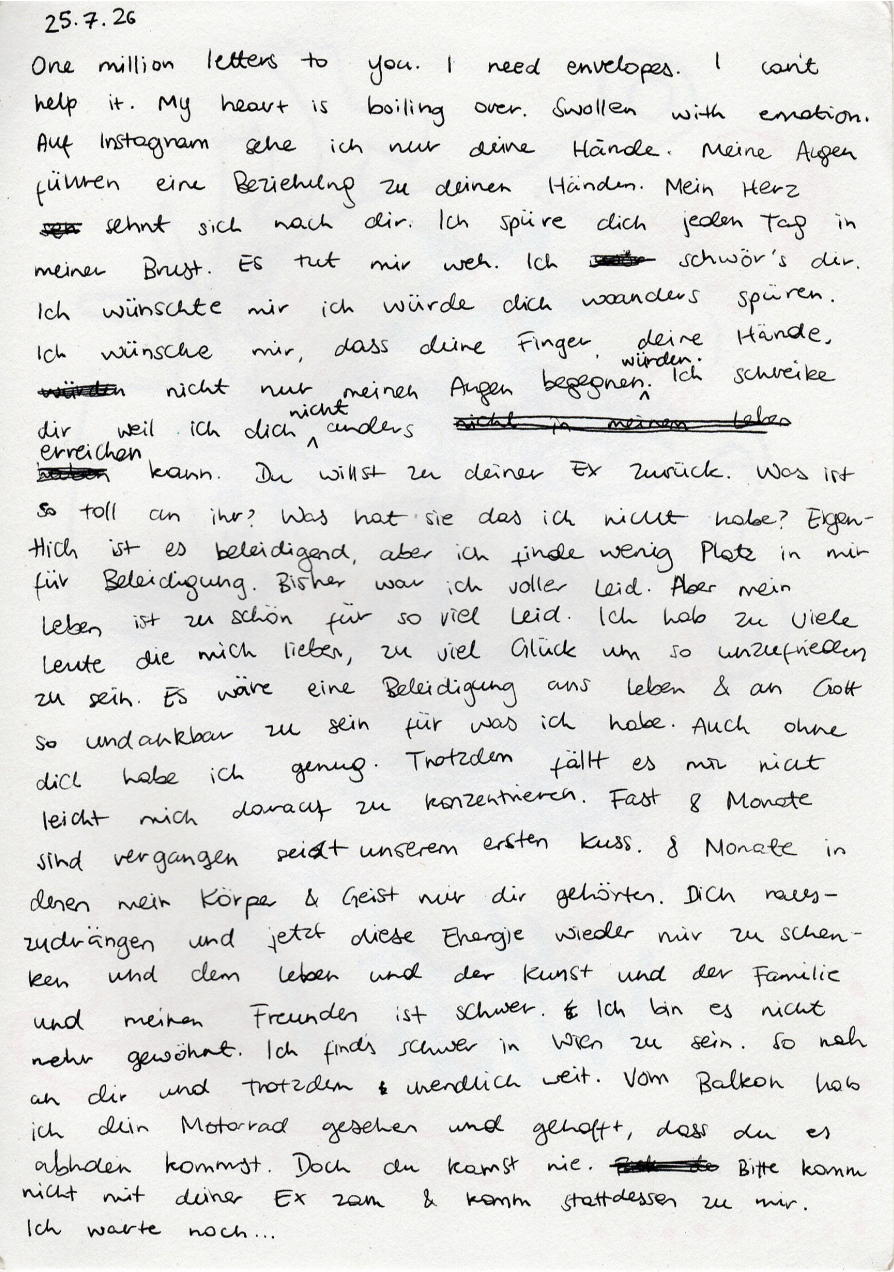 25.7.26
One million letters to you. I need envelopes. I can't
help it. My heart is boiling over. Swollen with emotion.
Auf Instagram sehe ich nur deine Hände. Meine Augen
führen eine Beziehung zu deinen Händen. Mein Herz
sehnt sich nach dir. Ich spüre dich jeden Tag in
meiner Brust. Es tut mir weh. Ich schwör's dir.
Ich wünschte mir ich würde dich woanders spüren.
Ich wünsche mir, dass deine Finger, deine Hände,
nicht nur meinen Augen begegnen würden. Ich schreibe
dir weil ich dich nicht anders
erreichen kann. Du willst zu deiner Ex zurück. Was ist
so toll an ihr? Was hat sie das ich nicht habe? Eigen-
tlich ist es beleidigend, aber ich finde wenig Platz in mir
für Beleidigung. Bisher war ich voller Leid. Aber mein
Leben ist zu schön für so viel Leid. Ich hab zu viele
Leute die mich lieben, zu viel Glück um so unzufrieden
zu sein. Es wäre eine Beleidigung ans Leben & an Gott
so undankbar zu sein für was ich habe. Auch ohne
dich habe ich genug. Trotzdem fällt es mir nicht
leicht mich darauf zu konzentrieren. Fast 8 Monate
sind vergangen seit unserem ersten Kuss. 8 Monate in
denen mein Körper & Geist nur dir gehörten. Dich raus-
zudrängen und jetzt diese Energie wieder mir zu schen-
ken und dem Leben und der Kunst und der Familie
und meinen Freunden ist schwer. Ich bin es nicht
mehr gewöhnt. Ich find's schwer in Wien zu sein. So nah
an dir und trotzdem unendlich weit. Vom Balkon hab
ich dein Motorrad gesehen und gehofft, dass du es
abholen kommst. Doch du kamst nie. Bitte komm
nicht mit deiner Ex zam & komm stattdessen zu mir.
Ich warte noch...